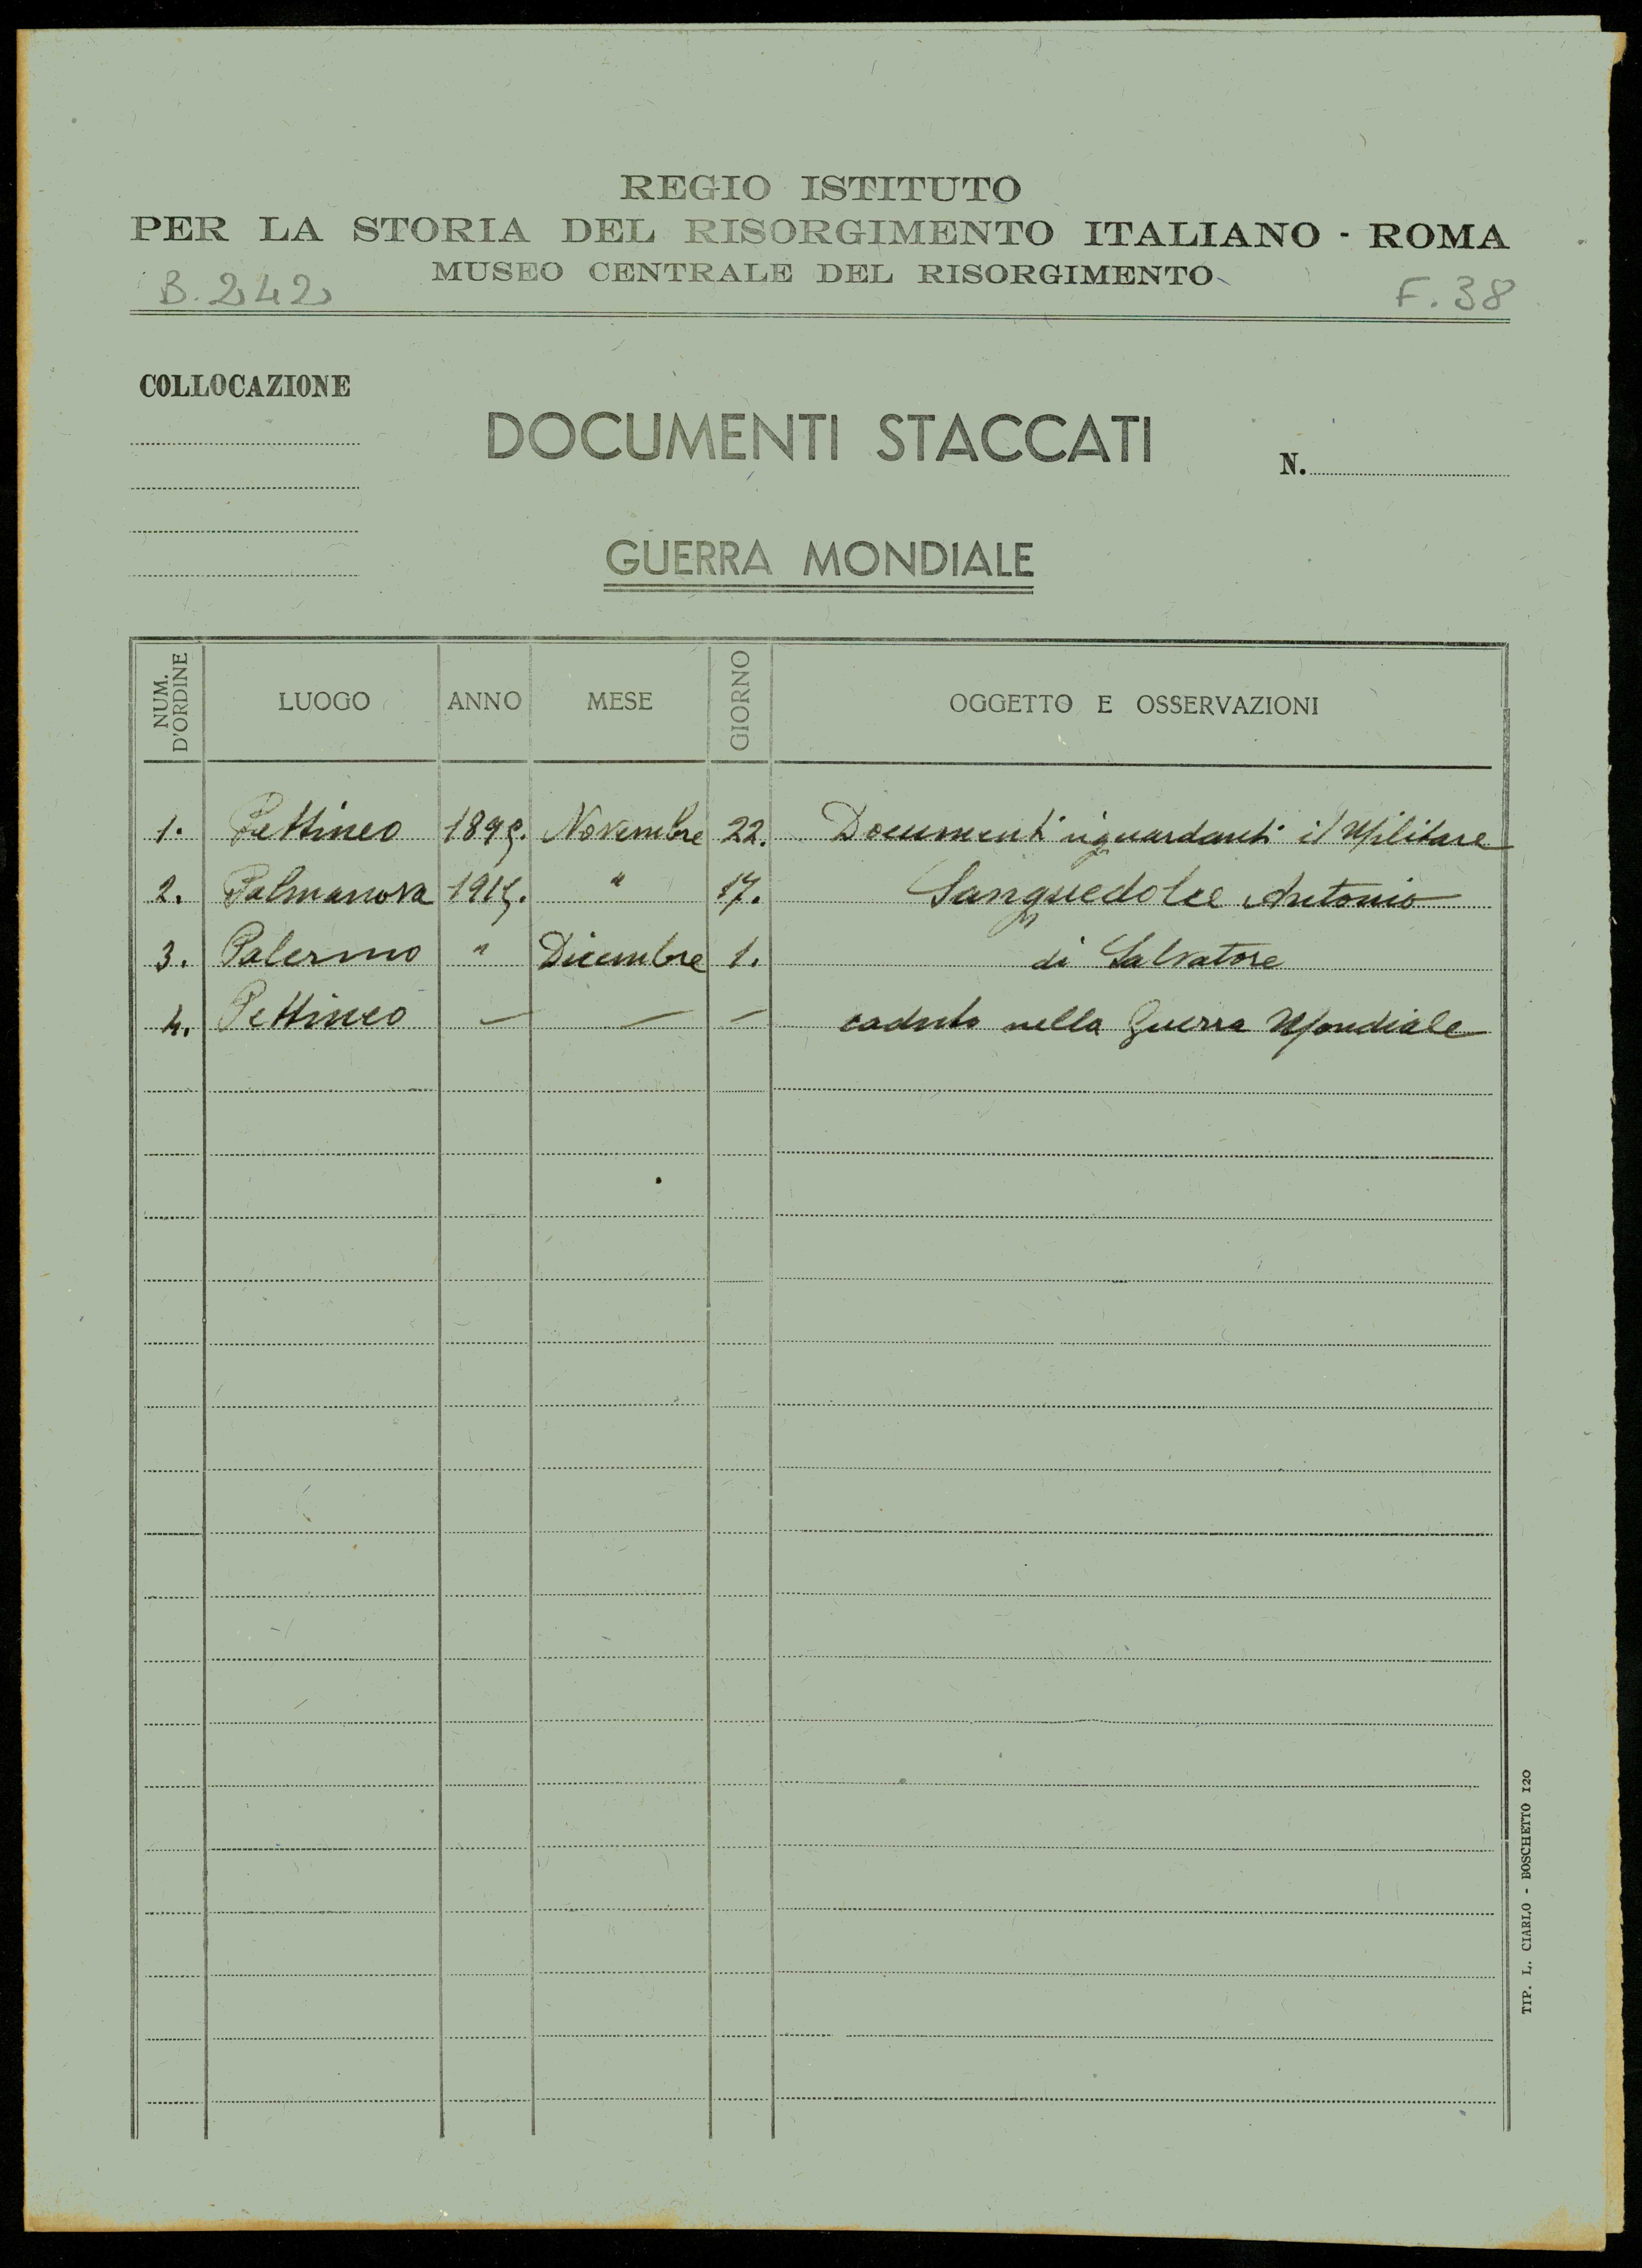 REGIO ISTITUTO
PER LA STORIA DEL RISORGIMENTO ITALIANO - ROMA
MUSEO CENTRALE DEL RISORGIMENTO
B. 242 F. 38
COLLOCAZIONE
DOCUMENTI STACCATI
N.
GUERRA MONDIALE
NUM. D'ORDINE LUOGO ANNO MESE GIORNO OGGETTO E OSSERVAZIONI
1. Pettineo 1895. Novembre 22. Documenti riguardanti il Militare
2. Palmanova 1915. " 17. Sanguedolce Antonio
3. Palermo " Dicembre 1. di Salvatore
4. Pettineo — — — caduto nella Guerra Mondiale
TIP. L. CIARLO - BOSCHETTO 120